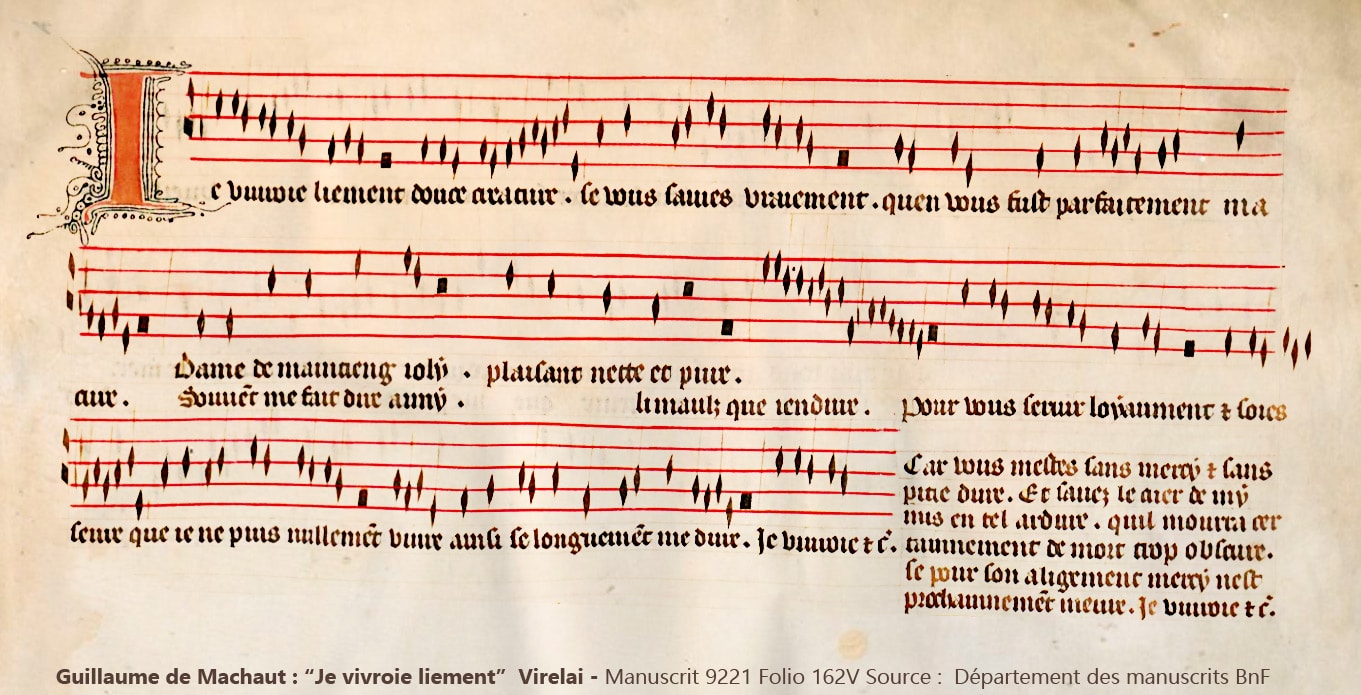 Je vivroie liement douce creature . se vous saviés vraiement . quen vous fust parfaitement ma
Dame de maintieng joly . plaisant nette et pure .
cure . Souvēt me fait dire aimy . li maulz que iendure . Pour vous servir loyaument & soies
seure que ie ne puis nullemēt vivre ainsi se longuemēt me dure . Je vivroie & c̄ .
Car vous mestes sans mercy & sans
pitie dure . Et savez le cuer de my
mis en tel ardure . quil mourra cer
tainnement de mort trop obscure .
se pour son aligement mercy nest
prochainnemēt meure . Je vivroie & c̄ .
Guillaume de Machaut : “Je vivroie liement” Virelai - Manuscrit 9221 Folio 162V Source : Département des manuscrits BnF